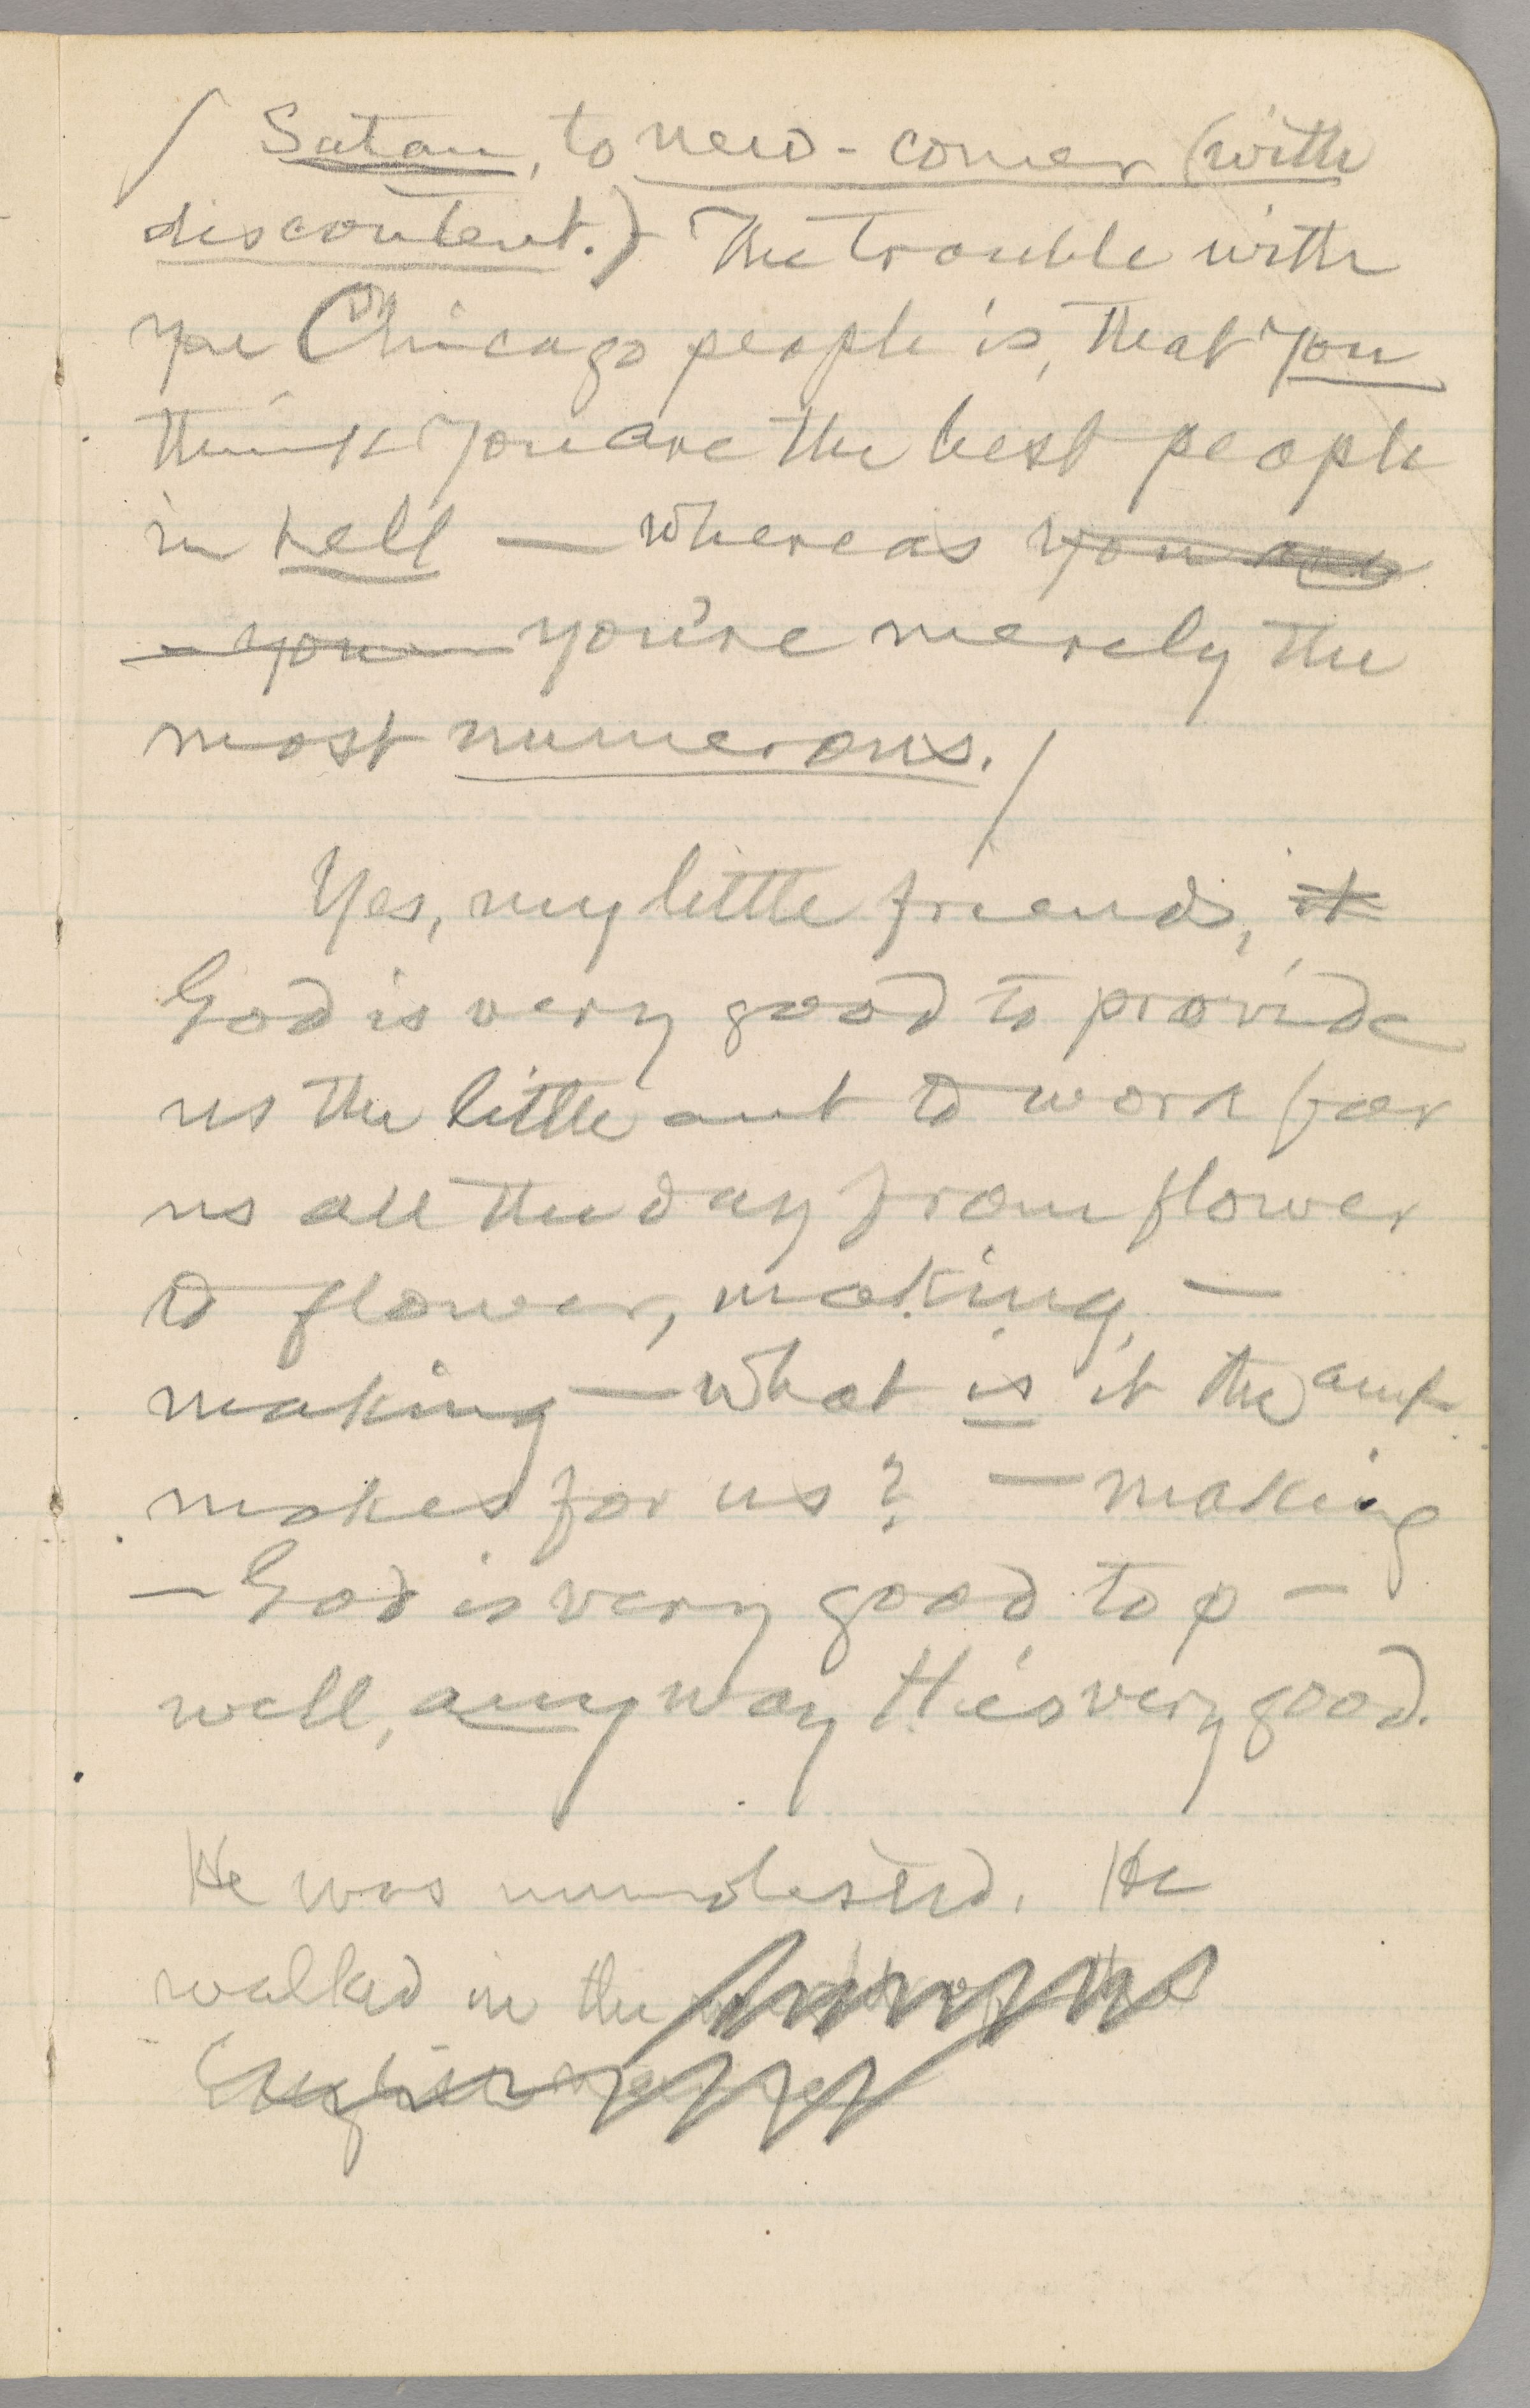 / Satan, to new-comer (with
discontent.) The trouble with
you Chicago people is, that you
think you are the best people
in hell — whereas you are
— you you're merely the
most numerous. /
Yes, my little friends, it
God is very good to provide
us the little ant to work for
us all the day from flower
to flower, making, —
making — what is it the ant
makes for us? — making
— God is very good to p —
well, anyway He's very good.
He was unmolested. He
walked in the